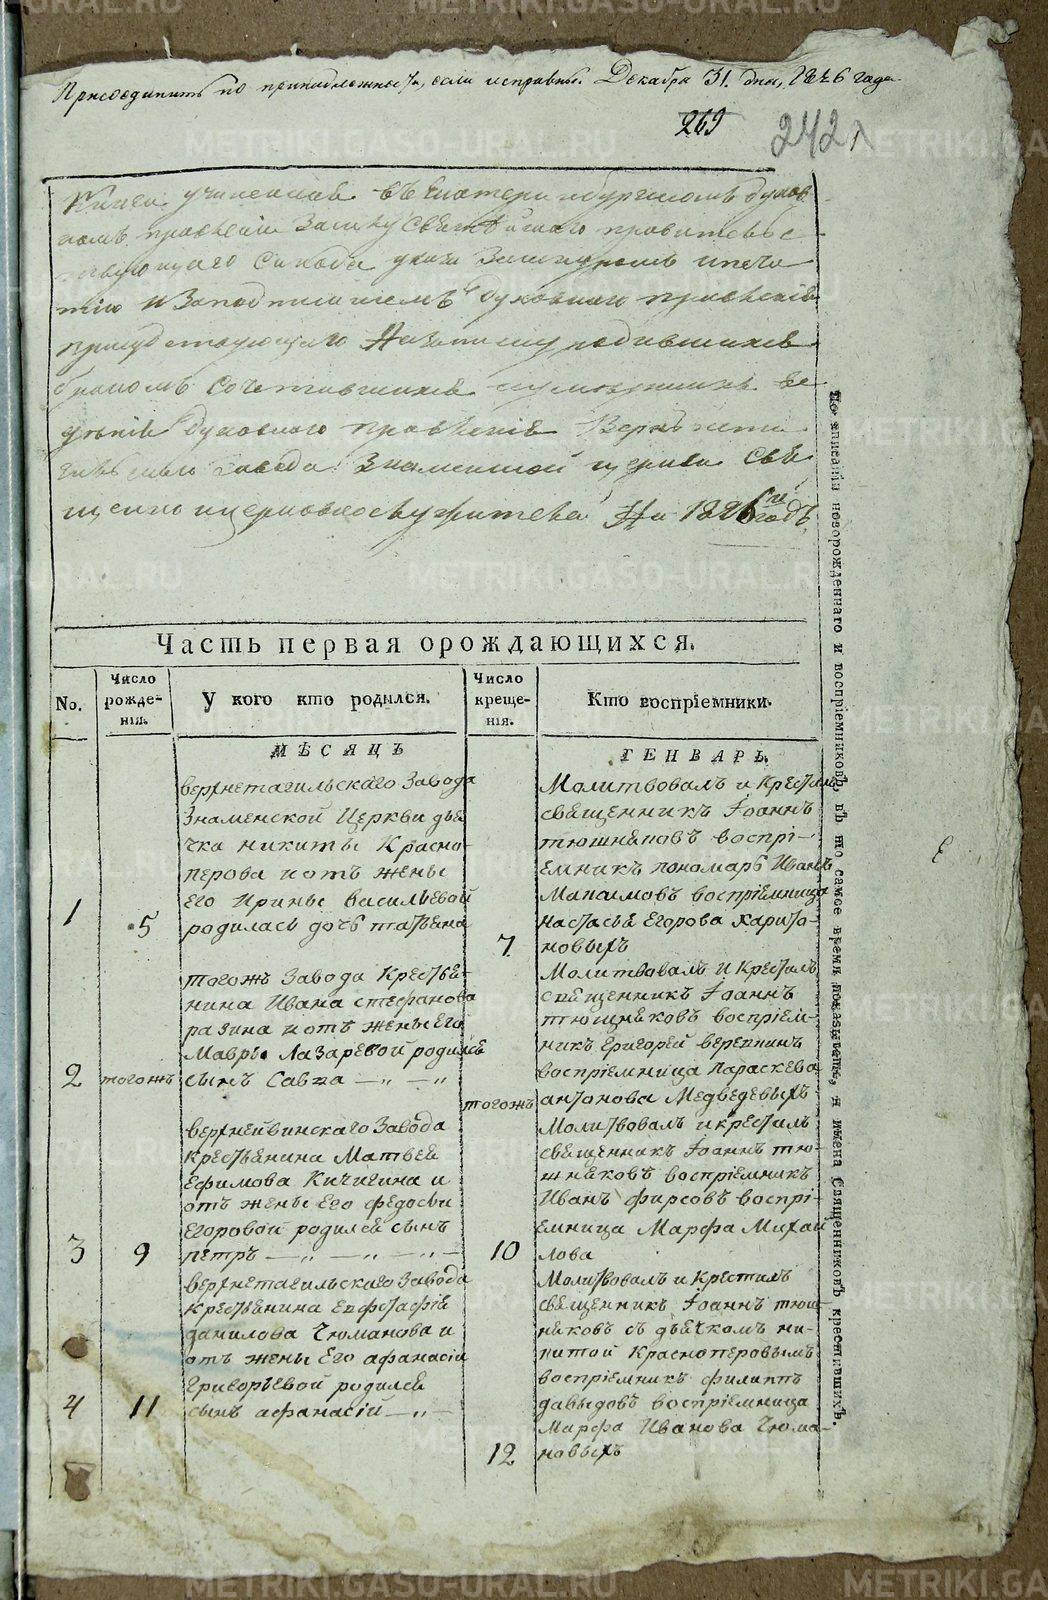 Присоединить по принадлежности, если исправны. Декабря 31. дня, 1826 года
269
242
Книга учиненная въ Екатеринбургскомъ духов
номъ правленіи Засилу Святѣйшаго правитељс
твующаго Синода указа Зашнуромъ ипеча
тію иЗаподписаніемъ духовнаго правленія
присудствующаго Назаписку родившихся
бракомъ сочетавшихся иумершихъ ве
денія духовного правленія Верхнета
гильскаго завода Знаменской церкви Свя
щенно ицерковнослужителей На 1826й годъ
Часть первая орождающихся.
No.
Число рожде-нія.
У кого кто родился.
Число креще-нія.
Кто воспріемники.
МѢСЯЦЪ
ГЕНВАРЬ.
1
5
верхнетагильскаго Завода
Знаменской Церкви дья
чка никиты Красно-
перова иотъ жены
Его Ирины васильевой
родилась дочь татьяна
7
Молитвовалъ и Крестилъ
священникъ Іоаннъ
тюшняковъ воспрі-
емникъ пономарь Иванъ
Максимовъ воспріемница
настасья Егорова харито-
новыхъ
2
тогожъ
тогожъ Завода Крестья-
нина Ивана стефанова
разина иотъ жены Его
Мавры Лазаревой родился
сынъ Савва — „ — „
тогожъ
Молитвовалъ и Крестилъ
священникъ Іоаннъ
тюшняковъ воспріем-
никъ григорей веревкинъ
воспріемница параскева
антонова Медведевыхъ
3
9
верхнейвинскаго Завода
Крестьянина Матвея
Ефимова Кичигина и
отъ жены Его федосьи
Егоровой родился сынъ
петръ — „ — „ — „ —
10
Молитвовалъ икрестилъ
священникъ Іоаннъ тю-
шняковъ воспріемникъ
Иванъ фирсовъ воспрі-
емница Марфа Михай
лова
4
11
верхнетагильскаго Завода
Крестьянина Евфстафія
данилова Чюманова и
отъ жены Его афанасіи
григорьевой родился
сынъ афанасіи — „ —
12
Молитвовалъ и Крестилъ
священникъ Іоаннъ тюш-
няковъ съ дьячкомъ ни-
китой Красноперовымъ
воспріемникъ филиппъ
давыдовъ воспріемница
Марфа Иванова Чюма-
новыхъ
По вписаніи новорожденнаго и воспріемниковъ, въ то самое время показывать, и имена Священниковъ крестившихъ.
METRIKI.GASO-URAL.RU